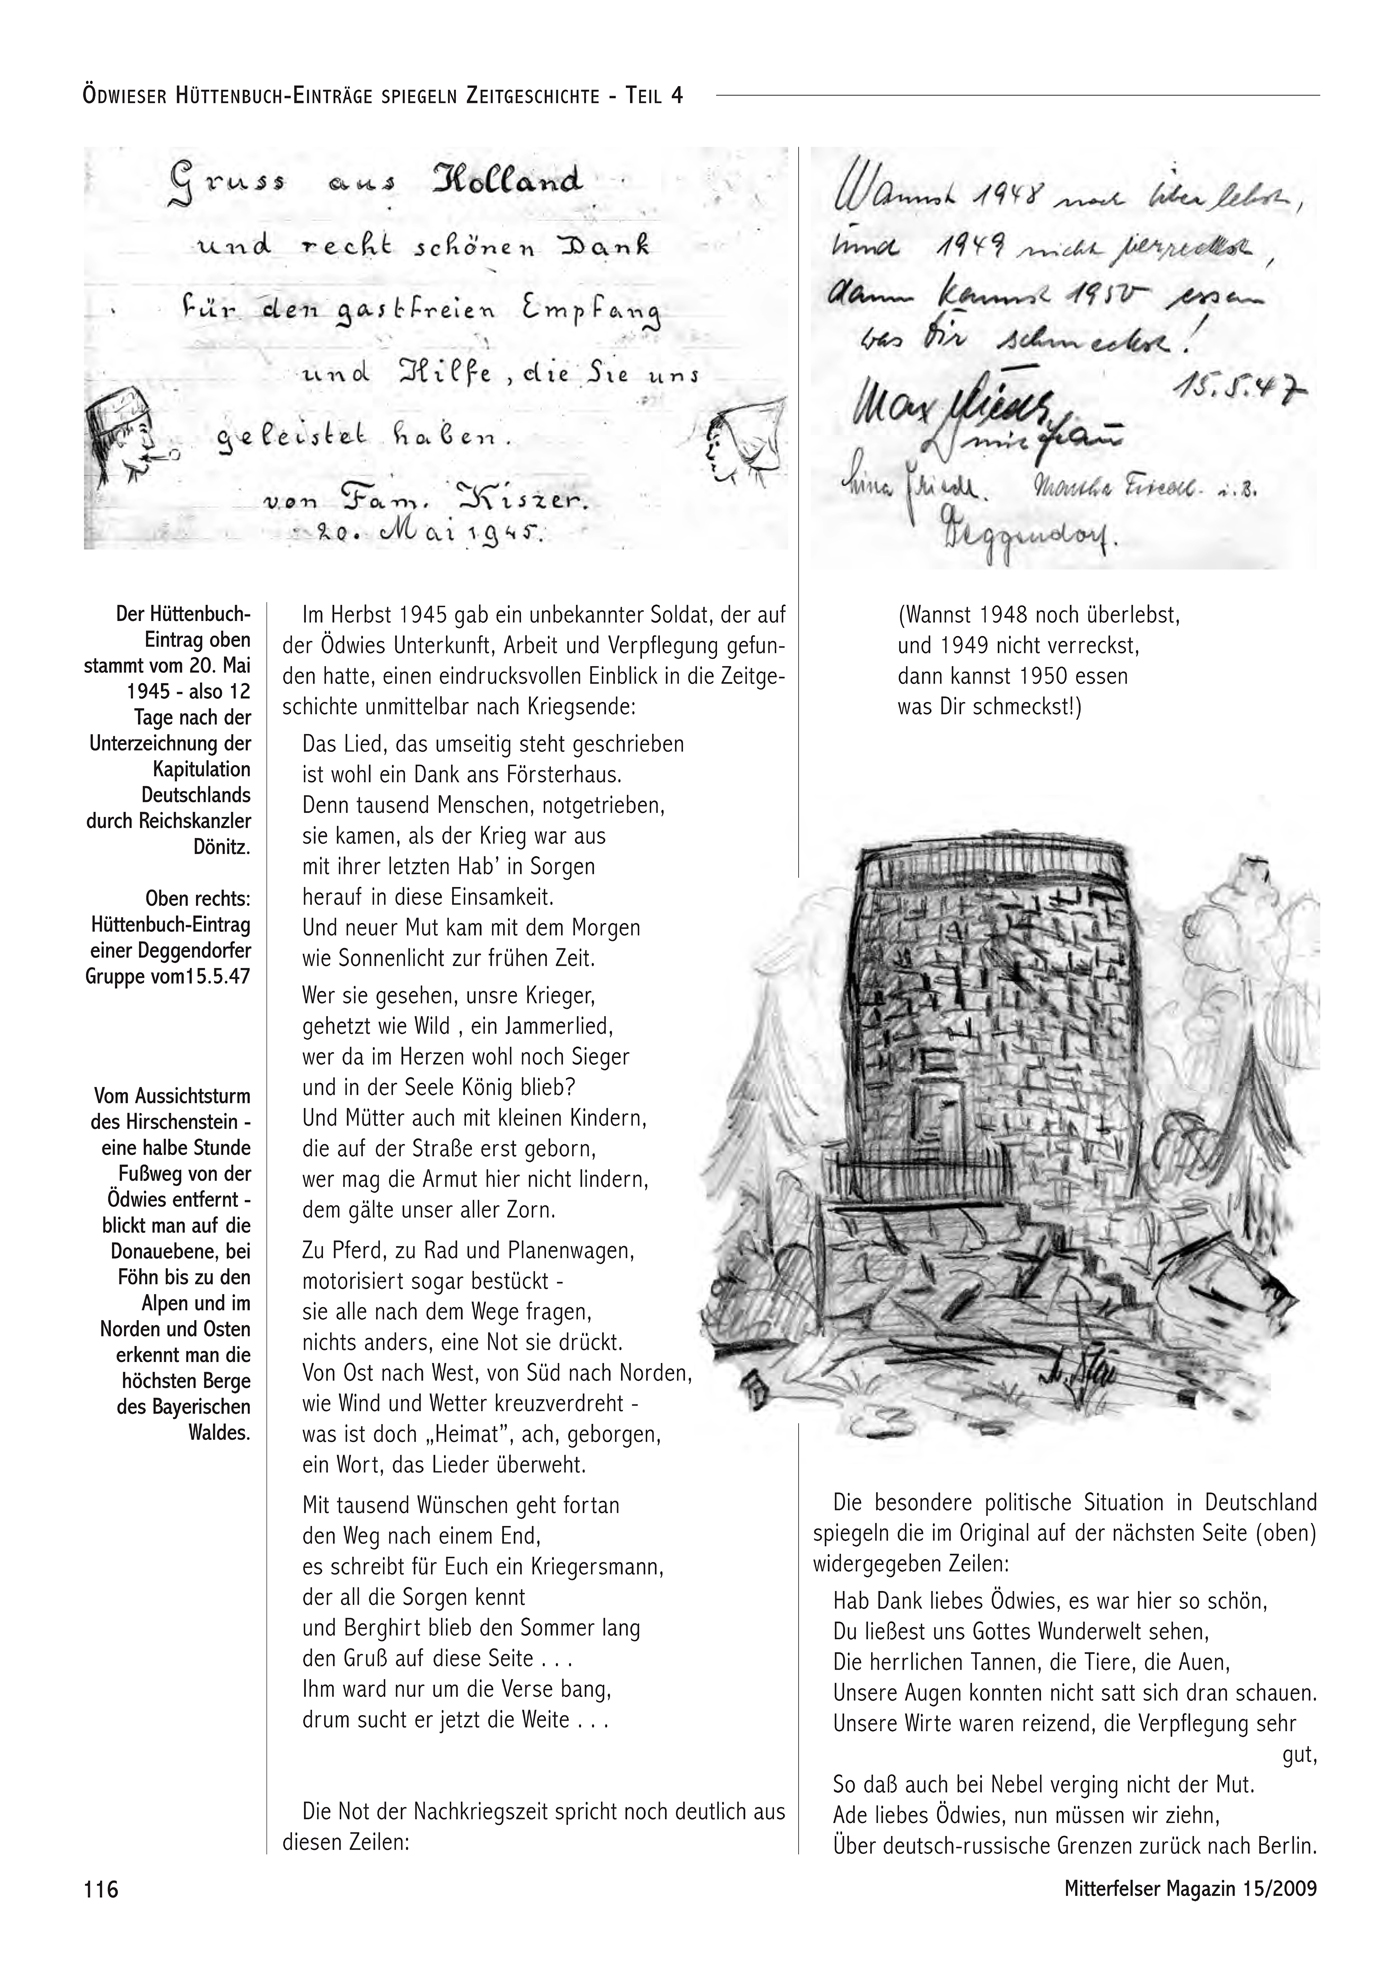 ÖDWIESER HÜTTENBUCH-EINTRÄGE SPIEGELN ZEITGESCHICHTE - TEIL 4
Gruss aus Holland
und recht schönen Dank
für den gastfreien Empfang
und Hilfe, die Sie uns
geleistet haben.
von Fam. Kiszer.
20. Mai 1945.
Wannst 1948 noch überlebst,
und 1949 nicht verreckst,
dann kannst 1950 essen
was Dir schmeckst!
15.5.47
Max
mit Frau
Lina Friedl. Martha Friedl. i.B.
Deggendorf.
Der Hüttenbuch-
Eintrag oben
stammt vom 20. Mai
1945 - also 12
Tage nach der
Unterzeichnung der
Kapitulation
Deutschlands
durch Reichskanzler
Dönitz.
Oben rechts:
Hüttenbuch-Eintrag
einer Deggendorfer
Gruppe vom15.5.47
Vom Aussichtsturm
des Hirschenstein -
eine halbe Stunde
Fußweg von der
Ödwies entfernt -
blickt man auf die
Donauebene, bei
Föhn bis zu den
Alpen und im
Norden und Osten
erkennt man die
höchsten Berge
des Bayerischen
Waldes.
Im Herbst 1945 gab ein unbekannter Soldat, der auf
der Ödwies Unterkunft, Arbeit und Verpflegung gefun-
den hatte, einen eindrucksvollen Einblick in die Zeitge-
schichte unmittelbar nach Kriegsende:
Das Lied, das umseitig steht geschrieben
ist wohl ein Dank ans Försterhaus.
Denn tausend Menschen, notgetrieben,
sie kamen, als der Krieg war aus
mit ihrer letzten Hab' in Sorgen
herauf in diese Einsamkeit.
Und neuer Mut kam mit dem Morgen
wie Sonnenlicht zur frühen Zeit.
Wer sie gesehen, unsre Krieger,
gehetzt wie Wild , ein Jammerlied,
wer da im Herzen wohl noch Sieger
und in der Seele König blieb?
Und Mütter auch mit kleinen Kindern,
die auf der Straße erst geborn,
wer mag die Armut hier nicht lindern,
dem gälte unser aller Zorn.
Zu Pferd, zu Rad und Planenwagen,
motorisiert sogar bestückt -
sie alle nach dem Wege fragen,
nichts anders, eine Not sie drückt.
Von Ost nach West, von Süd nach Norden,
wie Wind und Wetter kreuzverdreht -
was ist doch „Heimat”, ach, geborgen,
ein Wort, das Lieder überweht.
Mit tausend Wünschen geht fortan
den Weg nach einem End,
es schreibt für Euch ein Kriegersmann,
der all die Sorgen kennt
und Berghirt blieb den Sommer lang
den Gruß auf diese Seite . . .
Ihm ward nur um die Verse bang,
drum sucht er jetzt die Weite . . .
Die Not der Nachkriegszeit spricht noch deutlich aus
diesen Zeilen:
(Wannst 1948 noch überlebst,
und 1949 nicht verreckst,
dann kannst 1950 essen
was Dir schmeckst!)
Die besondere politische Situation in Deutschland
spiegeln die im Original auf der nächsten Seite (oben)
widergegeben Zeilen:
Hab Dank liebes Ödwies, es war hier so schön,
Du ließest uns Gottes Wunderwelt sehen,
Die herrlichen Tannen, die Tiere, die Auen,
Unsere Augen konnten nicht satt sich dran schauen.
Unsere Wirte waren reizend, die Verpflegung sehr
gut,
So daß auch bei Nebel verging nicht der Mut.
Ade liebes Ödwies, nun müssen wir ziehn,
Über deutsch-russische Grenzen zurück nach Berlin.
116
Mitterfelser Magazin 15/2009